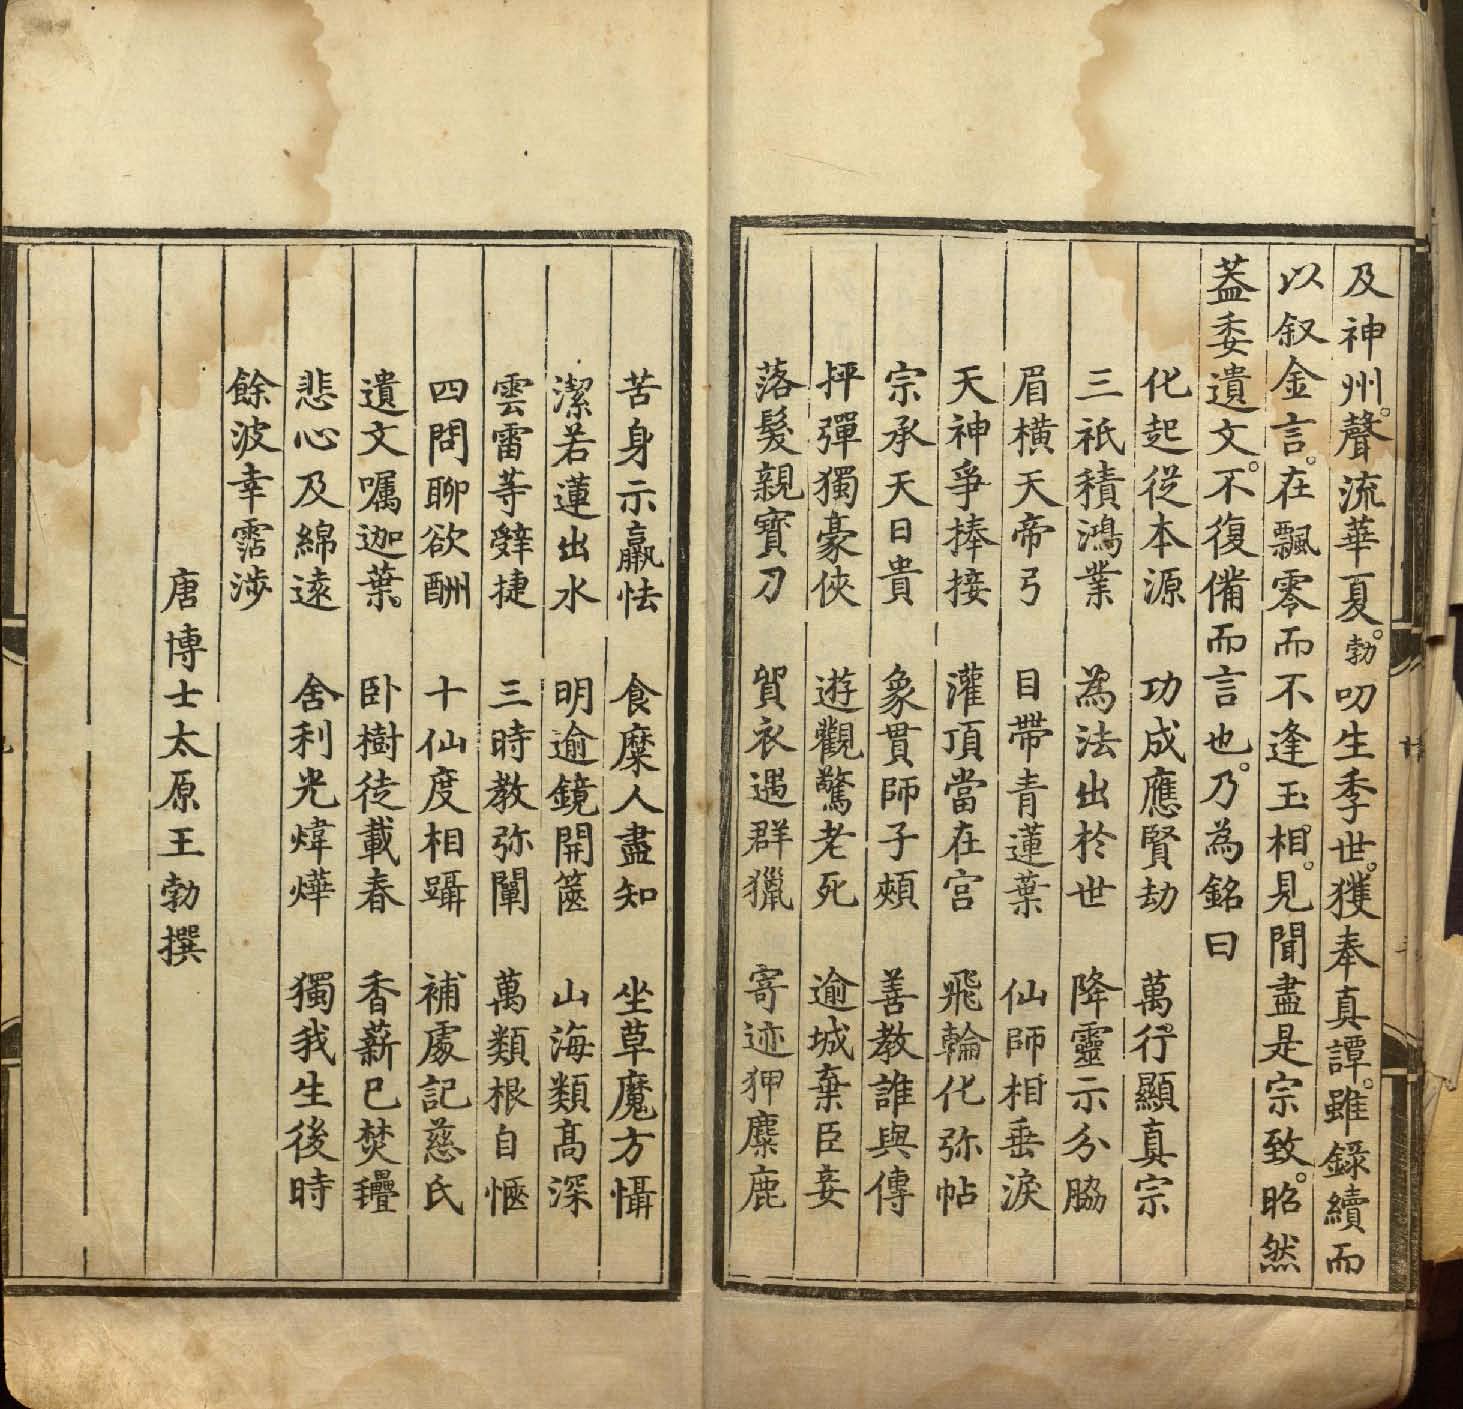 及神州。聲流華夏。勃叨生季世。獲奉真譚。雖錄續而
以叙金言。在飄零而不逢玉相。見聞盡是宗致。昭然
葢委遺文。不復備而言也。乃為銘曰
化起從本源　功成應賢劫　萬行顯真宗
三祇積鴻業　為法出於世　降靈示分脇
眉橫天帝弓　目帶青蓮葉　仙師相垂淚
天神爭捧接　灌頂當在宮　飛輪化弥帖
宗承天日貴　象貫師子頰　善教誰與傳
抨彈獨豪俠　遊觀驚老死　逾城棄臣妾
落髮親寶刀　貿衣遇群獵　寄迹狎麋鹿
苦身示羸怯　食糜人盡知　坐草魔方懾
潔若蓮出水　明逾鏡開篋　山海類高深
雲雷等辭捷　三時教弥闡　萬類根自愜
四問聊欲酬　十仙度相躡　補處記慈氏
遺文囑迦葉。　卧樹徒載春　香薪已焚㲲
悲心及綿遠　舍利光煒燁　獨我生後時
餘波幸霑涉
唐博士太原王勃撰